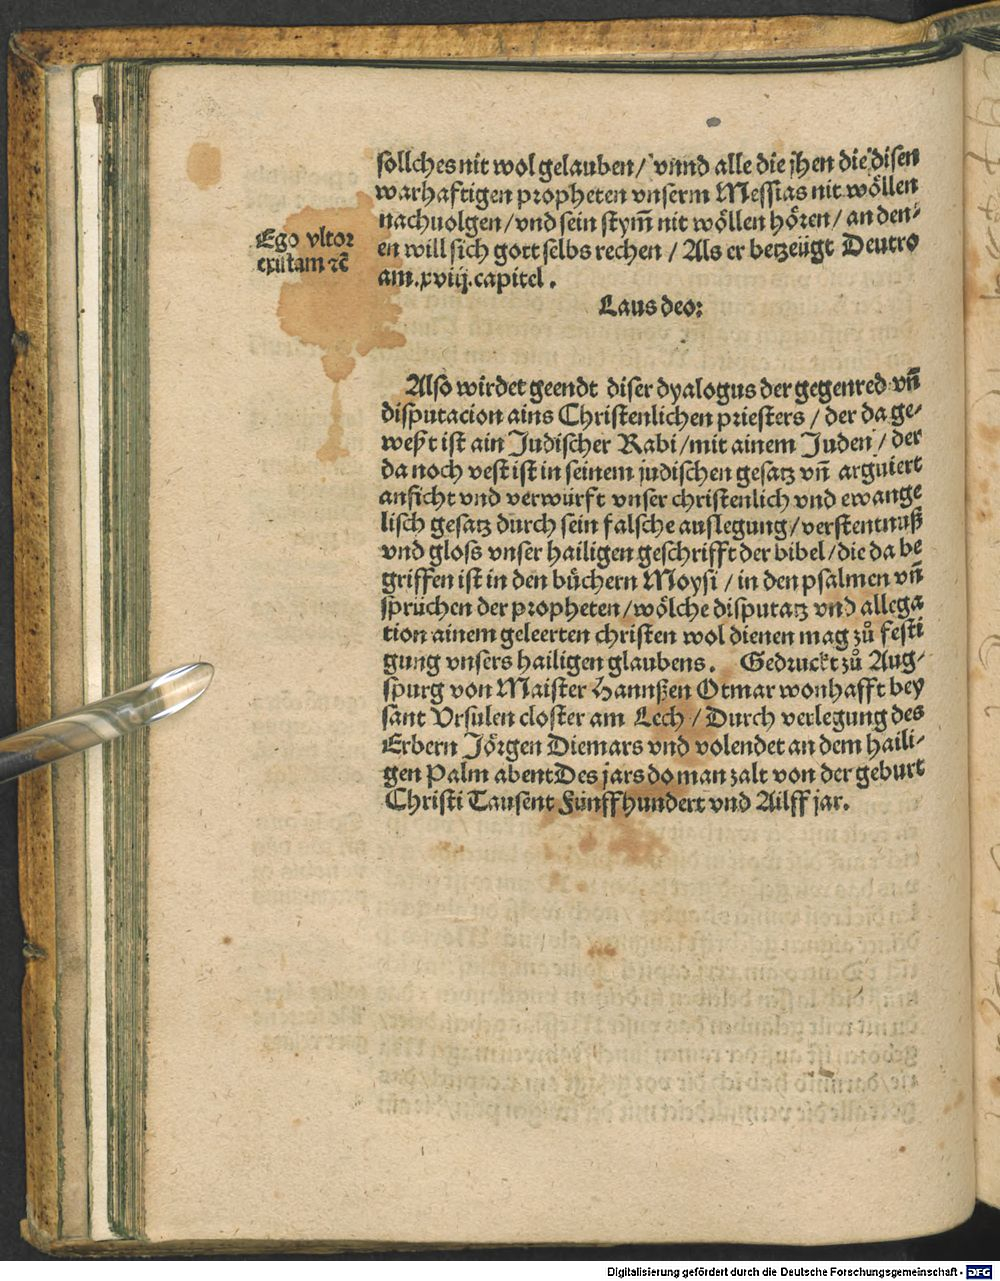 sollches nit wol gelauben / vnnd alle die jhen die disen
warhaftigen propheten vnserm Messias nit wöllen
nachuolgen / vnd sein stym̄ nit wöllen hören / an den⸗
en will sich gott selbs rechen / Als er betzeügt Deutro
am. xviij. capitel.
Ego vltor
existam ⁊c̄
Laus deo:
Also wirdet geendt diser dyalogus der gegenred vn̄
disputacion ains Christenlichen priesters / der da ge⸗
weßt ist ain Judischer Rabi / mit ainem Juden / der
da noch vest ist in seinem judischen gesatz vn̄ arguiert
anficht vnd verwürft vnser christenlich vnd ewange
lisch gesatz durch sein falsche auslegung / verstentnuß
vnd gloss vnser hailigen geschrifft der bibel / die da be
griffen ist in den büchern Moysi / in den psalmen vn̄
sprüchen der propheten / wölche disputatz vnd allega
tion ainem geleerten christen wol dienen mag zů festi
gung vnsers hailigen glaubens. Gedruckt zů Aug⸗
spurg von Maister Hannßen Otmar wonhafft bey
sant Vrsulen closter am Lech / Durch verlegung des
Erbern Jörgen Diemars vnd volendet an dem haili⸗
gen Palm abent Des jars do man zalt von der geburt
Christi Tausent Fünffhundert vnd Ailff jar.
Digitalisierung gefördert durch die Deutsche Forschungsgemeinschaft - DFG